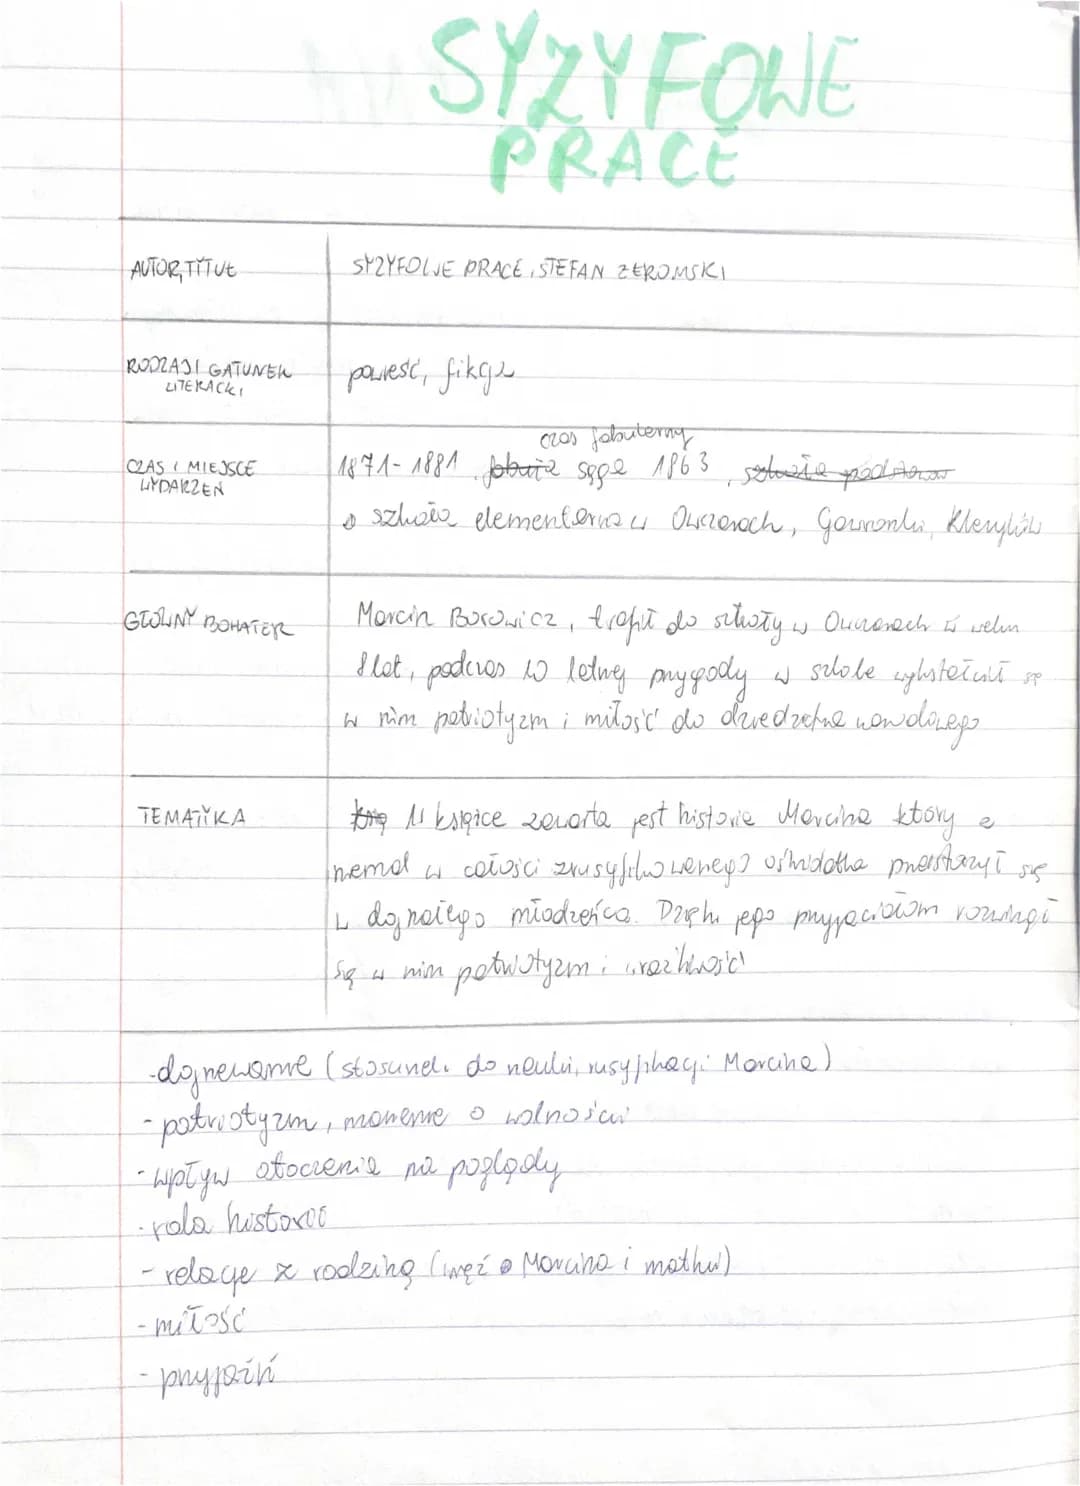 SYZYFOWE
PRACE
AUTOR, TYTUŁ
SYZYFOWE PRACE, STEFAN ŻEROMSKI
RODZAJ I GATUNEK
LITERACKI
powieść, fikcja
CZAS I MIEJSCE
WYDARZEŃ
czas fabularny
1871-1881, fabuła sięga 1863, szkoła podstawow
szkoła elementarna w Owczarach, Gawronki, Kleryków
GŁÓWNY BOHATER
Marcin Borowicz, trafił do szkoły w Owczarach w wieku
8 lat, podczas 10 letniej przygody w szkole wykształcił się
w nim patriotyzm i miłość do dziedzictwa narodowego
TEMATYKA
W książce zawarta jest historia Marcina który z
niemal w całości zrusyfikowanego uśredotka przeistoczył się
w dojrzałego młodzieńca. Dzięki jego przyjaciołom rozwinął
się w nim patriotyzm i wrażliwość
- dojrzewanie (stosunek do nauki, rusyfikacji Marcina)
- patriotyzm, marzenie o wolności
- wpływ otoczenia na poglądy
- rola historii
- relacje z rodziną (więź Marcina i matki)
- miłość
- przyjaźń